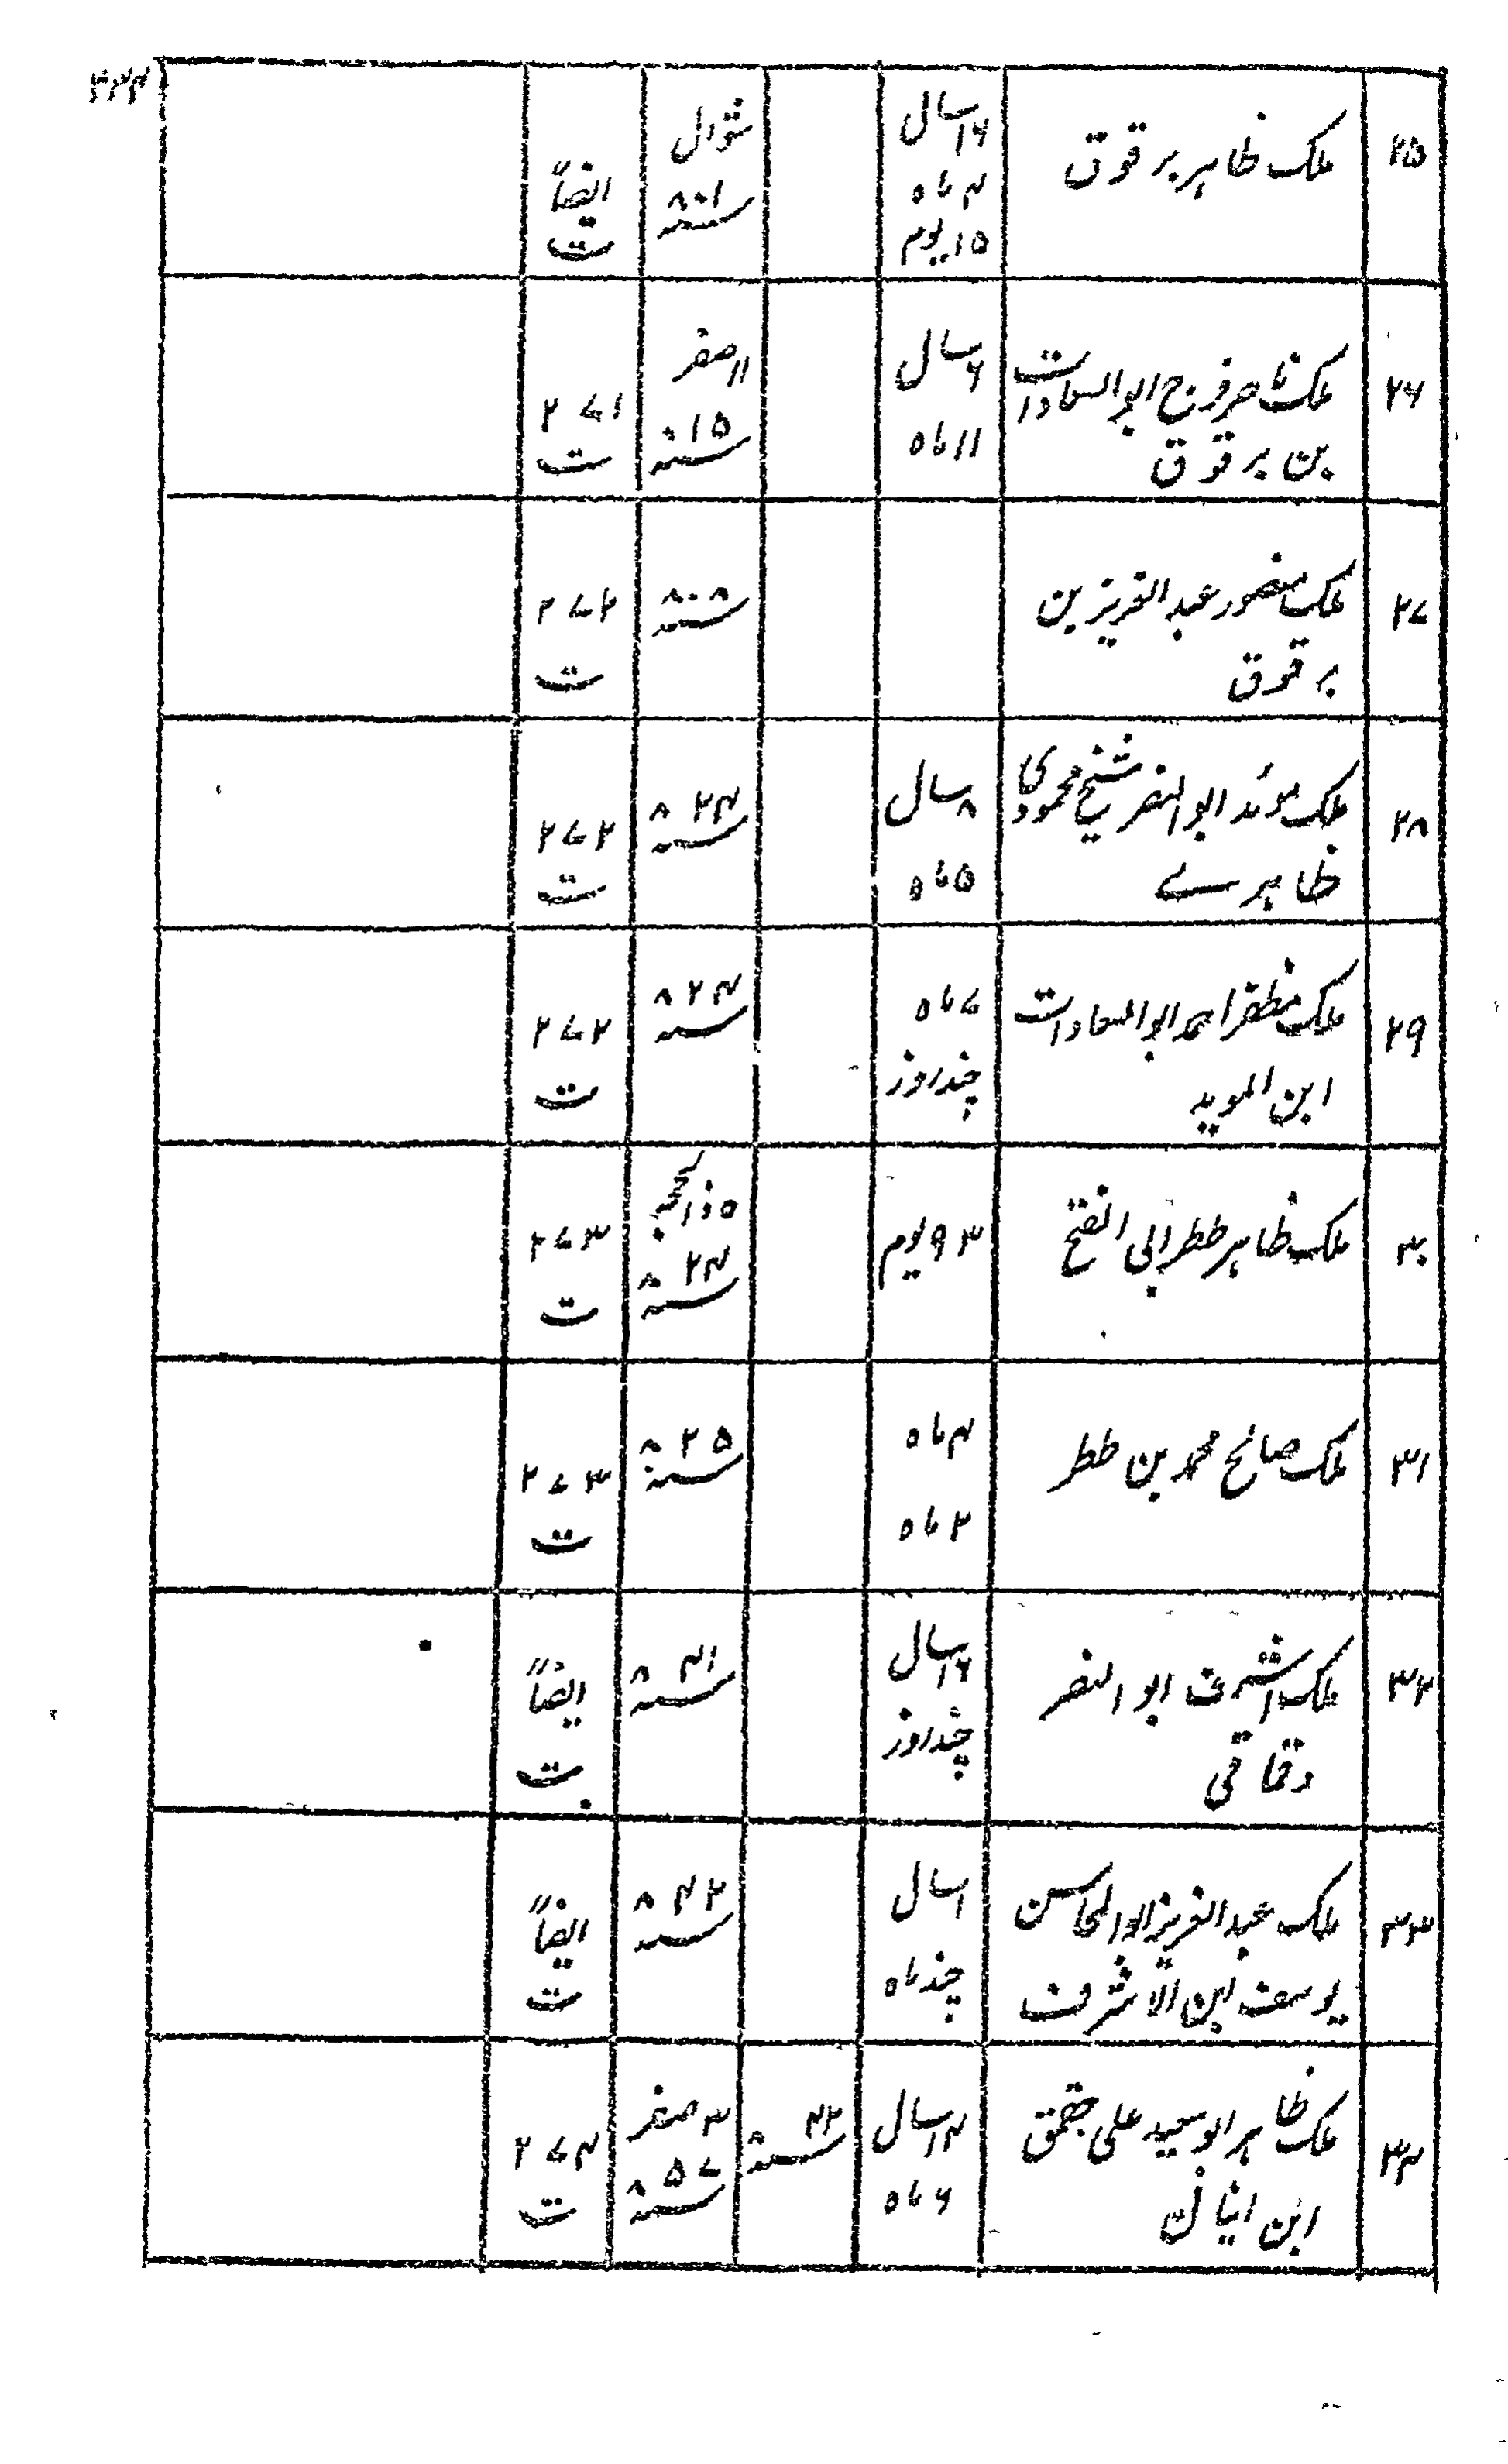 ۳۲۴
۲۵ ملک ظاہر برقوق ۱۶سال ۴ماہ ۱۵یوم شوال ۸۰۱سنہ ایضاً ت
۲۶ ملک ناصر فرج ابوالسعادات بن برقوق ۶سال ۱۱ماہ ۱۱صفر ۸۱۵سنہ ۲۷۱ ت
۲۷ ملک منصور عبدالعزیز بن برقوق ۸۰۸سنہ ۲۷۲ ت
۲۸ ملک موئد ابوالنصر شیخ محمودی ظاہرے ۸سال ۵ماہ ۸۲۴سنہ ۲۷۲ ت
۲۹ ملک مظفر احمد ابوالسعادات ابن الموید ۷ماہ چندروز ۸۲۴سنہ ۲۷۲ ت
۳۰ ملک ظاہر ططر ابی الفتح ۹۳یوم ذالحجہ ۸۲۴سنہ ۲۷۳ ت
۳۱ ملک صالح محمد بن ططر ۴ماہ ۲ماہ ۸۲۵سنہ ۲۷۳ ت
۳۲ ملک اشرف ابوالنصر دقماقی ۱۶سال چندروز ۸۴۱سنہ ایضاً ت
۳۳ ملک عبدالعزیز ابوالمحاسن یوسف ابن الاشرف ۱سال چندماہ ۸۴۲سنہ ایضاً ت
۳۴ ملک ظاہر ابوسعید علی جقمق ابن ۱۴سال ۶ماہ ۸۴۲سنہ ۳صفر ۸۵۷سنہ ۲۷۴ ت